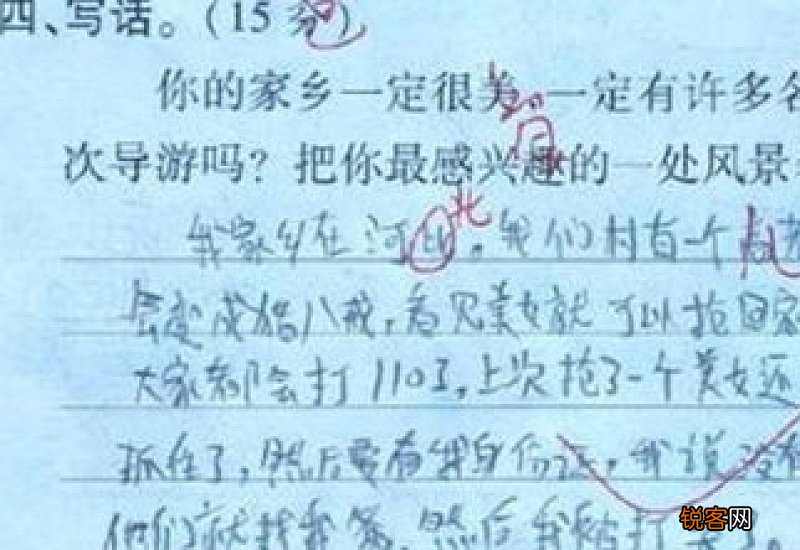 四、写话。(15分)
你的家乡一定很美。一定有许多名
次导游吗?把你最感兴趣的一处风景
北
我家乡在河,我们村有一个高老
会变成猪八戒,看见美女就可以抢回家
大家都会打110了,上次抢了一个美女还
抓住了,然后要看我身份证,我说没有
他们就找我爸,然后我被打
锐客网